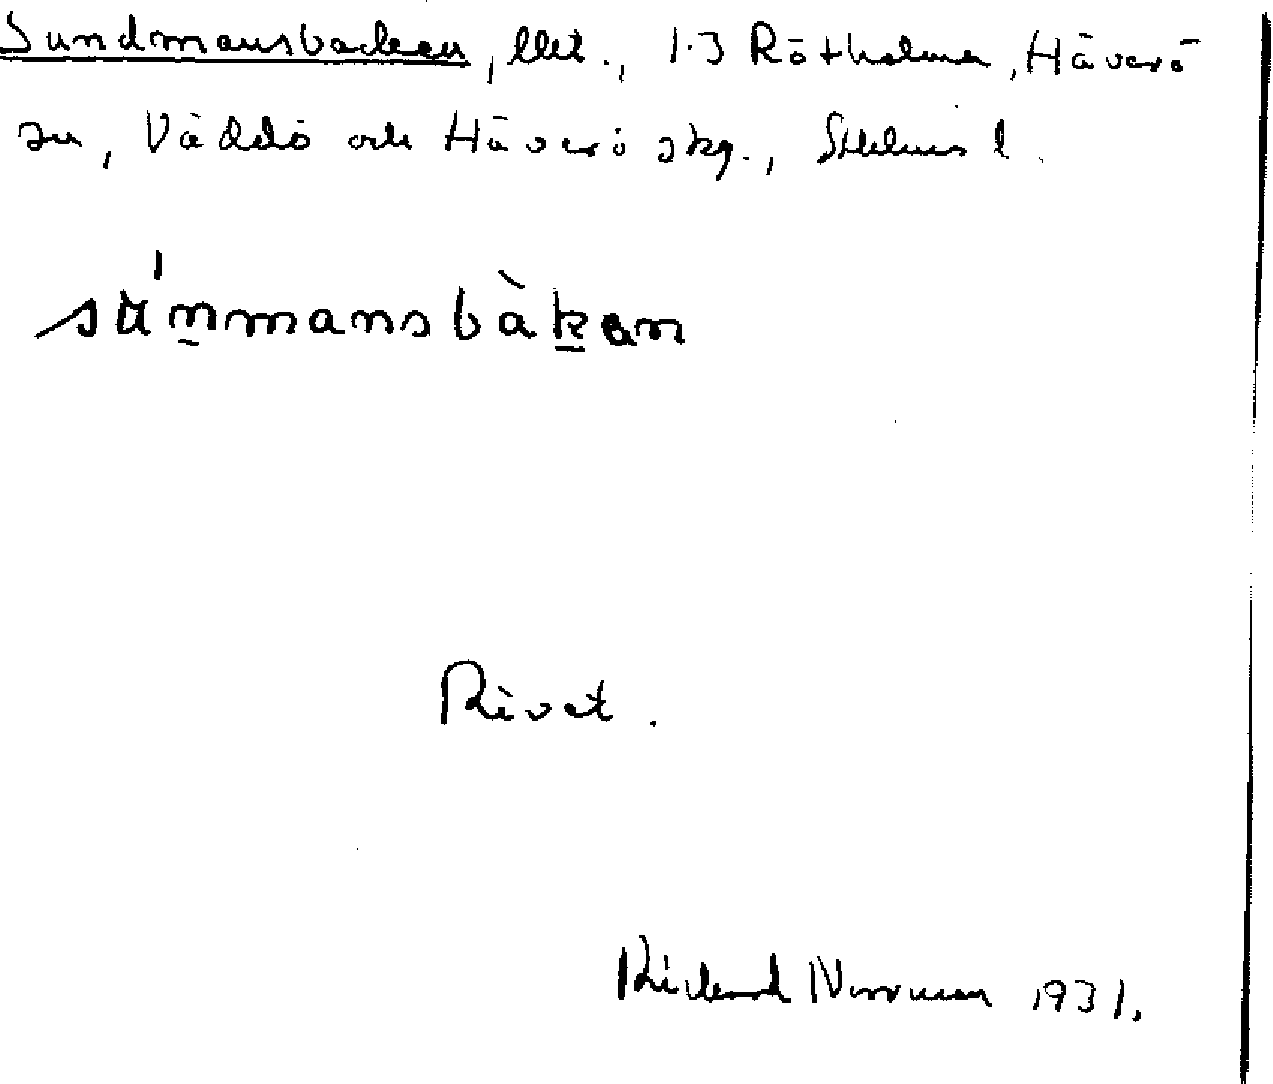 Sundmansbacken, lht., 1:3 Rötholma, Häverö
sn, Väddö och Häverö skg., Sthlms l.
súnmansbàkan
Rivet.
Rickard Norrman 1931.